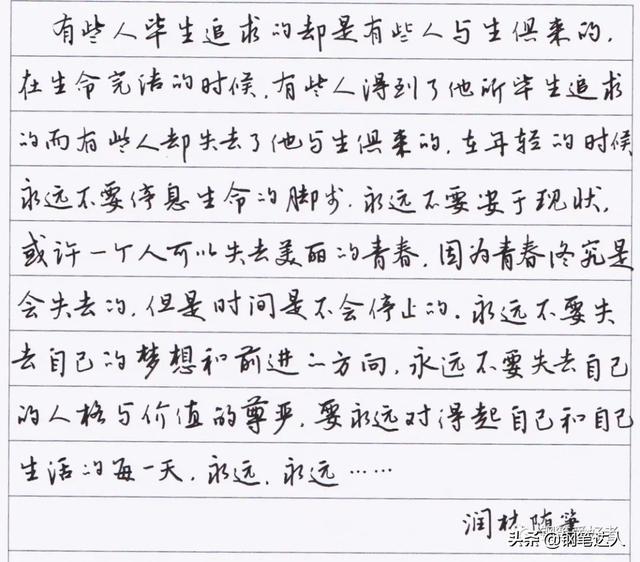 有些人毕生追求的却是有些人与生俱来的,
在生命完结的时候,有些人得到了他所毕生追求
的而有些人却失去了他与生俱来的,在年轻的时候
永远不要停息生命的脚步,永远不要安于现状,
或许一个人可以失去美丽的青春,因为青春终究是
会失去的,但是时间是不会停止的.永远不要失
去自己的梦想和前进的方向,永远不要失去自己
的人格与价值的尊严,要永远对得起自己和自己
生活的每一天,永远,永远……
润材随笔
头条 @钢笔达人